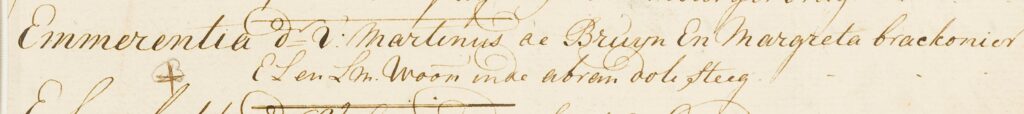 Emmerentia dr. V: Martinus de Bruijn En Margreta brackonier
EL en Lm. Woon inde abram dole steeg.